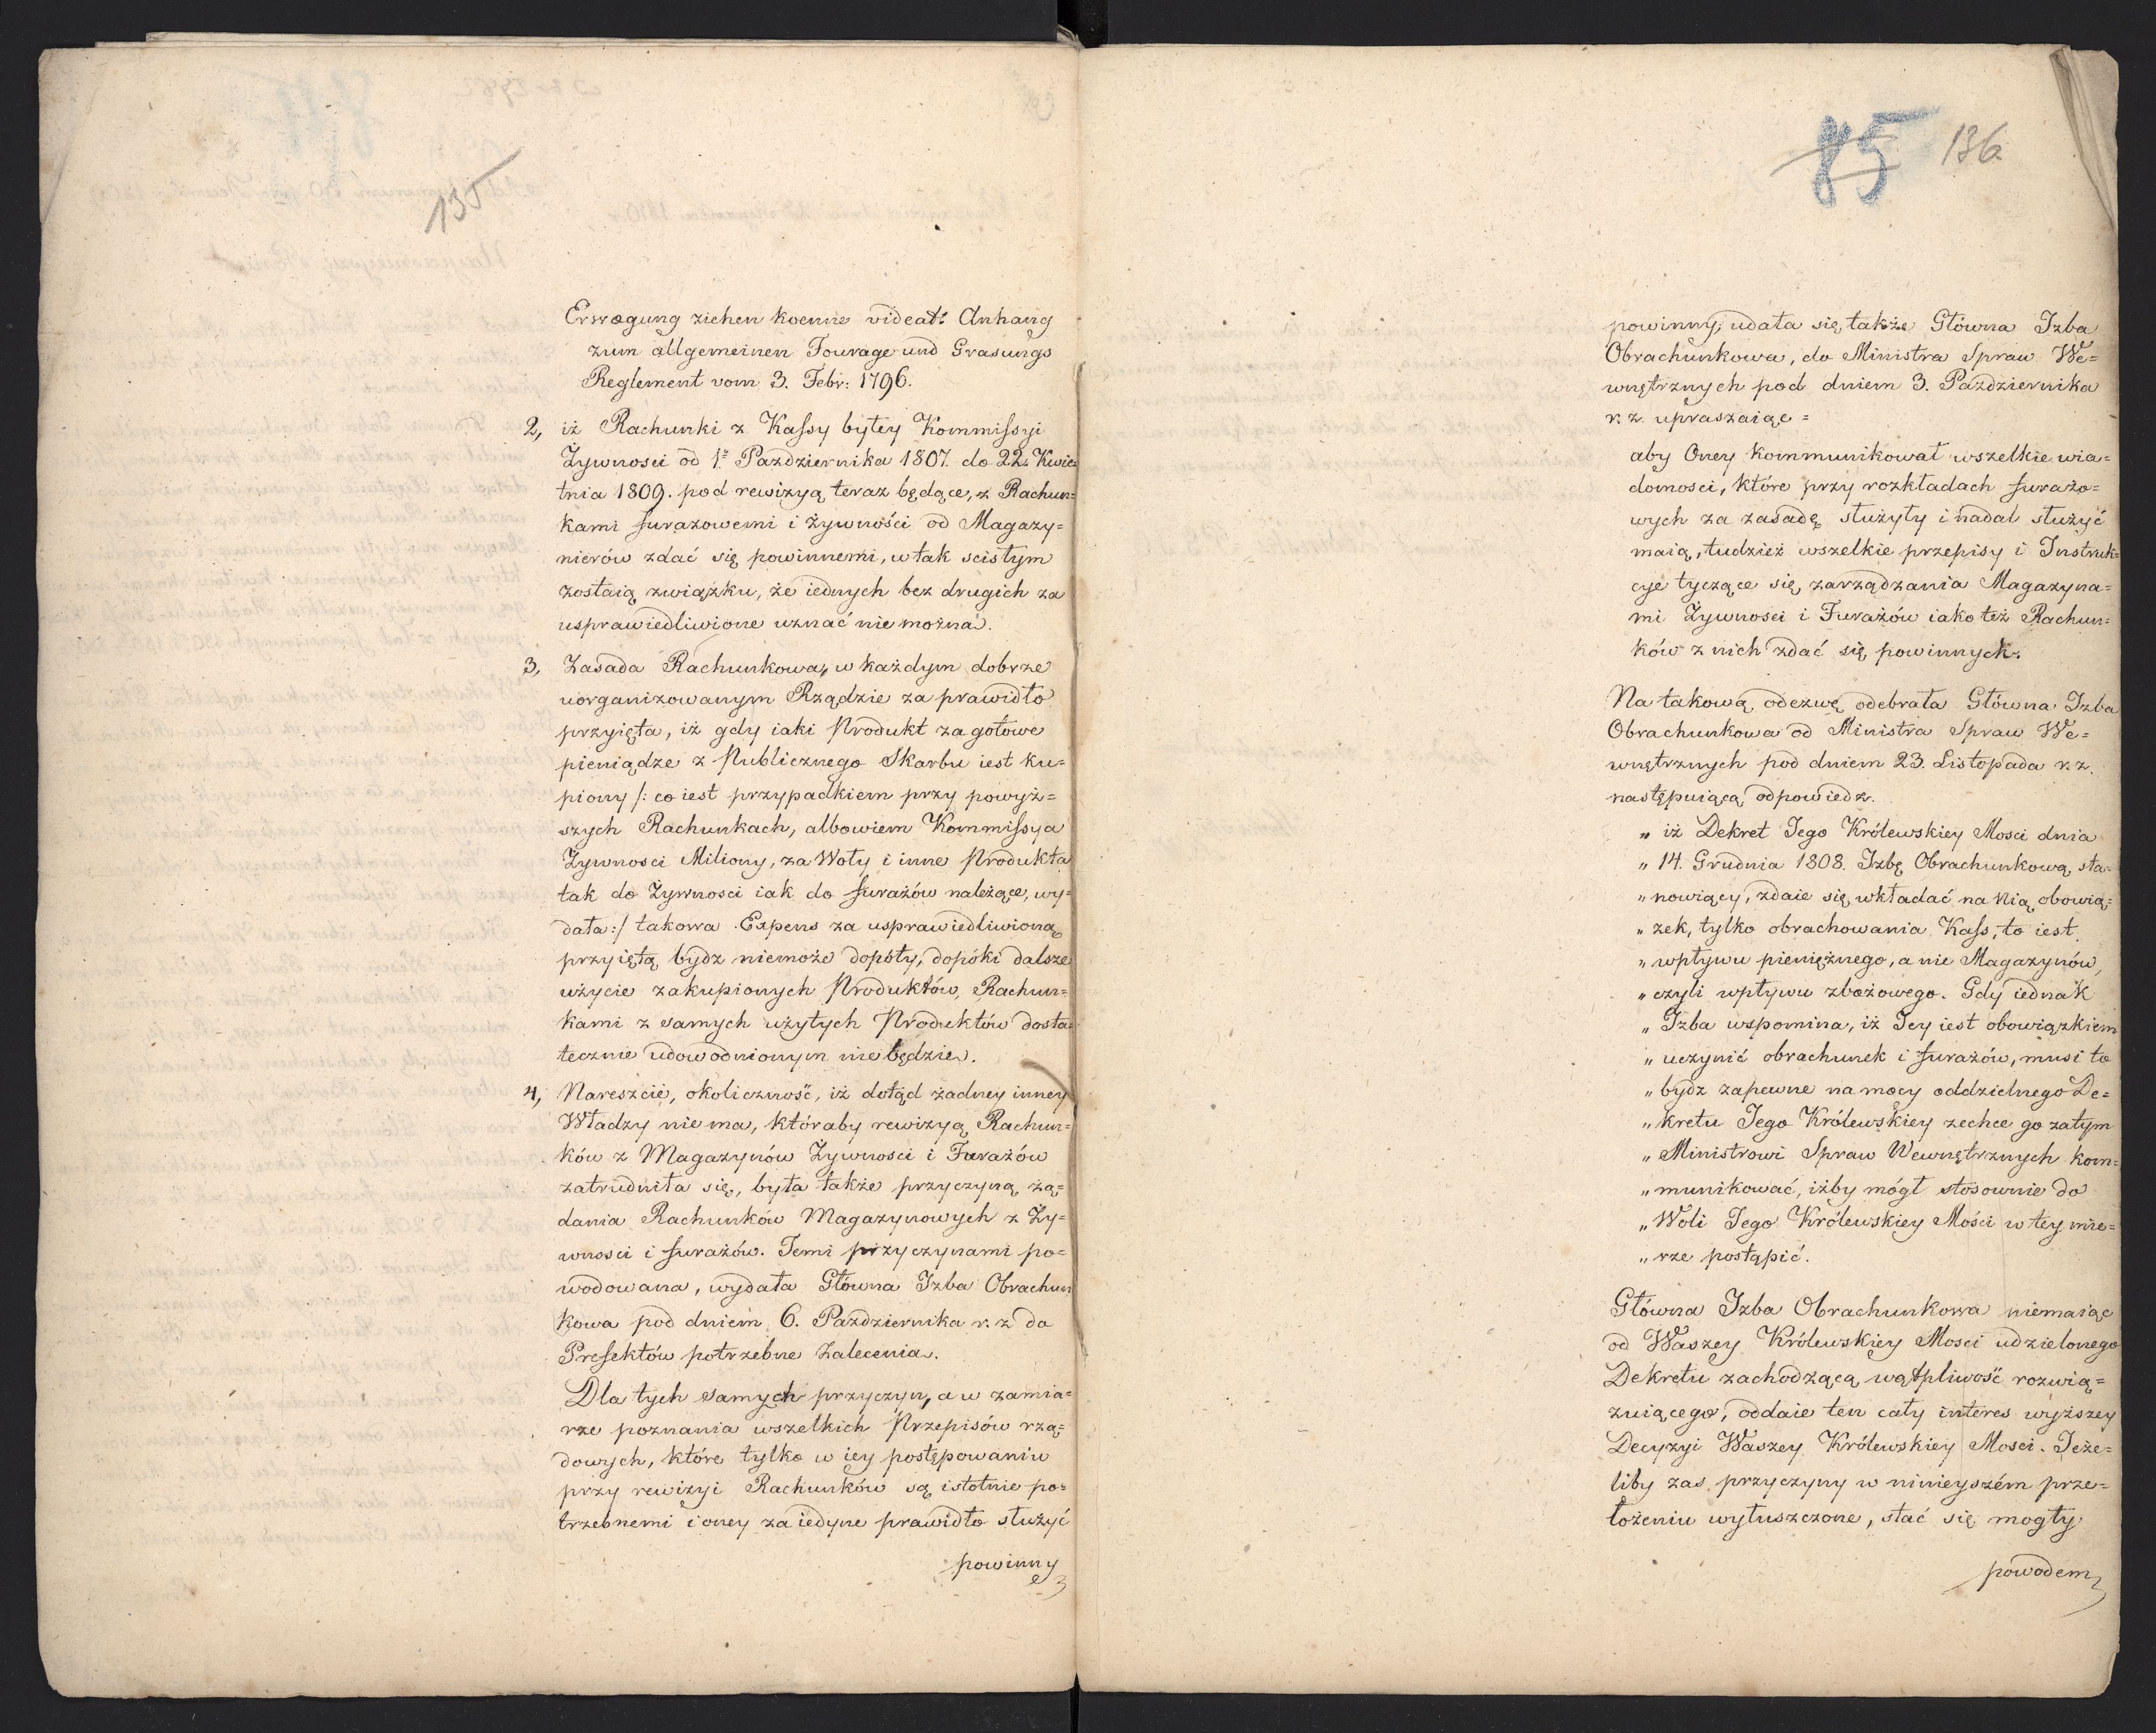 135
Erwægung ziehen koenne videat: Anhang
zum allgemeinen Fourage und Grasungs
Reglement vom 3. Febr: 1796.
2, iż Rachunki z Kassy byłey Kommissyi
Żywnosci od 1º Pazdziernika 1807. do 22. Kwie=
tnia 1809. pod rewizyą teraz będące, z Rachun=
kami furazowemi i żywności od Magazy=
nierów zdać się powinnemi, w tak scisłym
zostaią związku, że iednych bez drugich za
usprawiedliwione uznać nie można.
3, Zasada Rachunkowa, w każdym dobrze
uorganizowanym Rządzie za prawidło
przyięta, iż gdy iaki Produkt za gotowe
pieniądze z Publicznego Skarbu iest ku=
piony /: co iest przypadkiem przy powyż=
szych Rachunkach, albowiem Kommissya
Żywnosci Miliony, za Woły i inne Produkta
tak do Żywnosci iak do furażów należące, wy=
dała :/ takowa Expens za usprawiedliwioną
przyiętą bydz niemoże dopóty, dopóki dalsze
użycie zakupionych Produktów, Rachun=
kami z samych użytych Produktów dosta=
tecznie udowodnionym nie będzie.
4, Nareszcie, okoliczność, iż dotąd żadney inney
Władzy nie ma, któraby rewizyą Rachun=
ków z Magazynów Żywnosci i Furażów
zatrudniła się, była także przyczyną żą=
dania Rachunków Magazynowych z Ży=
wnosci i furażów. Temi przyczynami po=
wodowana, wydała Główna Izba Obrachun
kowa pod dniem 6. Pazdziernika r. z. do
Prefektów potrzebne Zalecenia.
Dla tych samych przyczyn, a w zamia=
rze poznania wszelkich Przepisów rzą=
dowych, które tylko w iey postępowaniu
przy rewizyi Rachunków są istotnie po=
trzebnemi i oney za iedyne prawidło służyć
powinny
85 136
powinny, udała się także Główna Izba
Obrachunkowa, do Ministra Spraw We=
wnętrznych pod dniem 3. Pazdziernika
r. z. upraszaiąc =
aby Oney kommunikował wszelkie wia=
domosci, które przy rozkładach furażo=
wych za zasadę służyły i nadal służyć
maią, tudzież wszelkie przepisy i Instruk=
cye tyczące się zarządzania Magazyna=
mi Żywnosci i Furażów iako też Rachun=
ków z nich zdać się powinnych.
Na takową odezwę odebrała Główna Izba
Obrachunkowa od Ministra Spraw We=
wnętrznych pod dniem 23. Listopada r. z.
następuiącą odpowiedz.
„ iż Dekret Jego Królewskiey Mosci dnia
„ 14. Grudnia 1808. Izbę Obrachunkową sta=
„ nowiący, zdaie się wkładać na Nią obowią=
„ zek, tylko obrachowania Kass, to iest
„ wpływu pieniężnego, a nie Magazynów,
„ czyli wpływu zbożowego. Gdy iednak
„ Izba wspomina, iż Jey iest obowiązkiem
„ uczynić obrachunek i furażów, musi to
„ bydz zapewne na mocy oddzielnego De=
„ kretu Jego Królewskiey zechce go zatym
„ Ministrowi Spraw Wewnętrznych kom=
„ munikować, iżby mógł stosownie do
„ Woli Jego Królewskiey Mości w tey mie=
„ rze postąpić.
Główna Izba Obrachunkowa niemaiąc
od Waszey Królewskiey Mosci udzielonego
Dekretu zachodzącą wątpliwość rozwią=
zuiącego, oddaie ten cały interes wyższey
Decyzyi Waszey Królewskiey Mosci. Jeże=
liby zas przyczyny w ninieyszém prze=
łożeniu wyłuszczone, stać się mogły
powodem